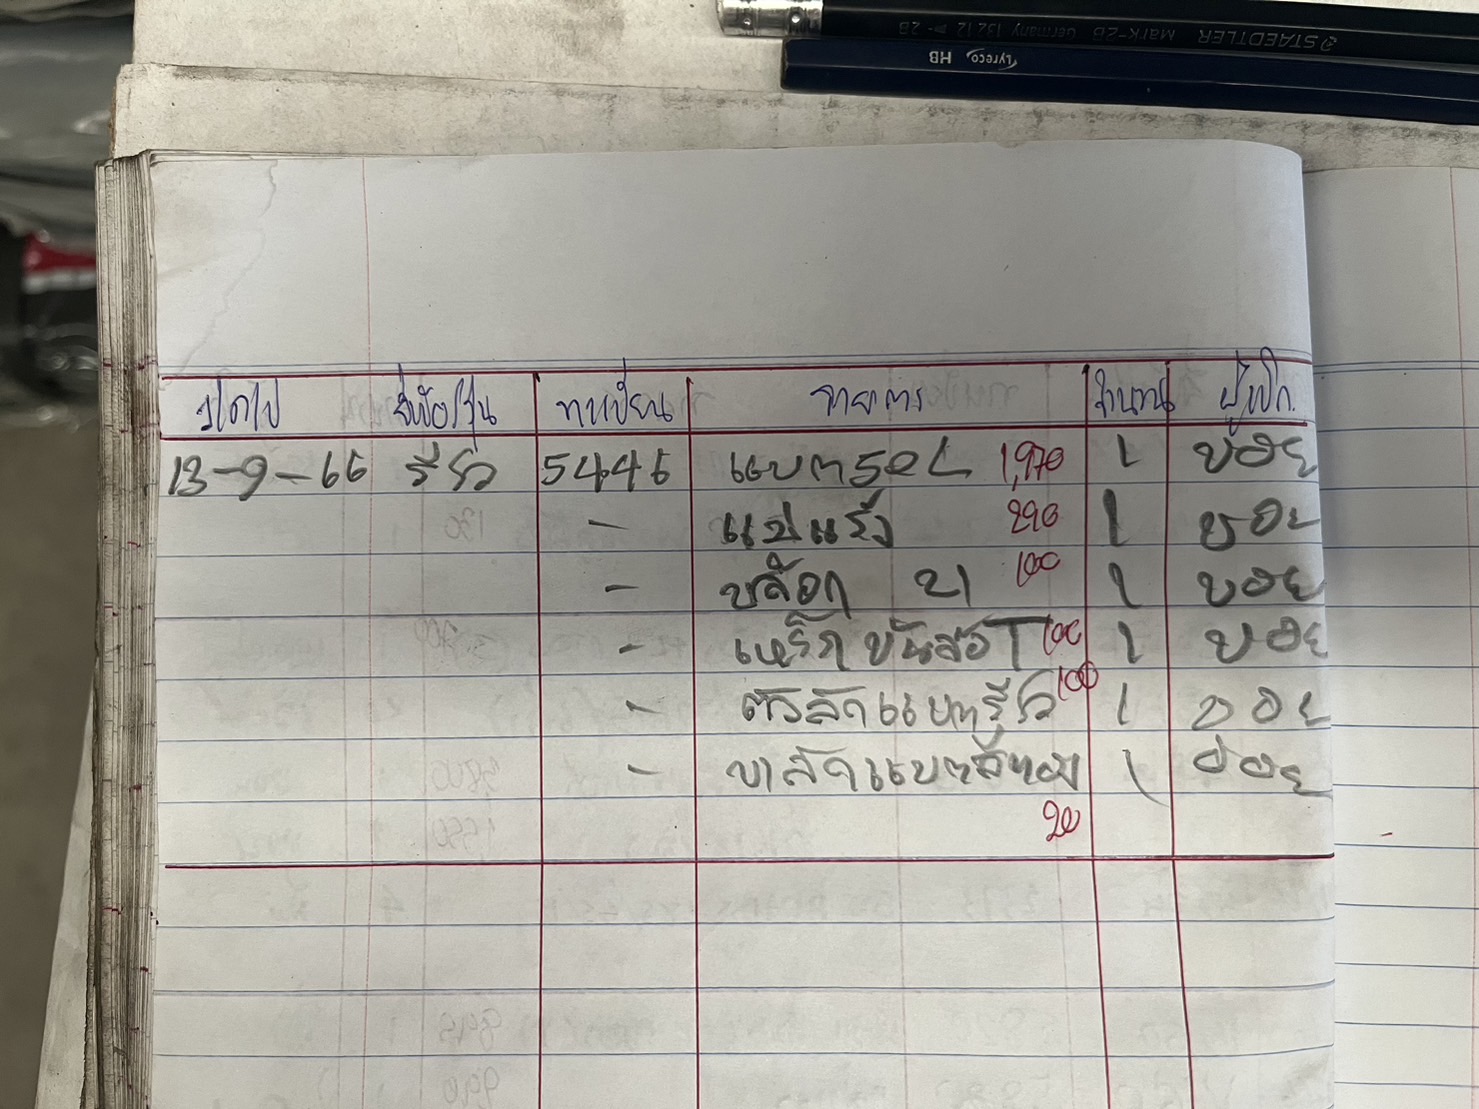 STAEDTLER Mark-2B Germany 13212 2B
Lyreco HB
ว/ด/ป ยี่ห้อ/รุ่น ทะเบียน รายการ จำนวน ผู้เบิก.
13-9-66 รีโว 5446 แบต 50L 1,970 1 บอย
- แปแร้ง 290 1 บอย
- บล๊อก 21 100 1 บอย
- เหร็ก ขันล้อ T 100 1 บอย
- ตัวลัดแบตรีโว 100 1 บอย
- ขาลัดแบต 1 บอย
20